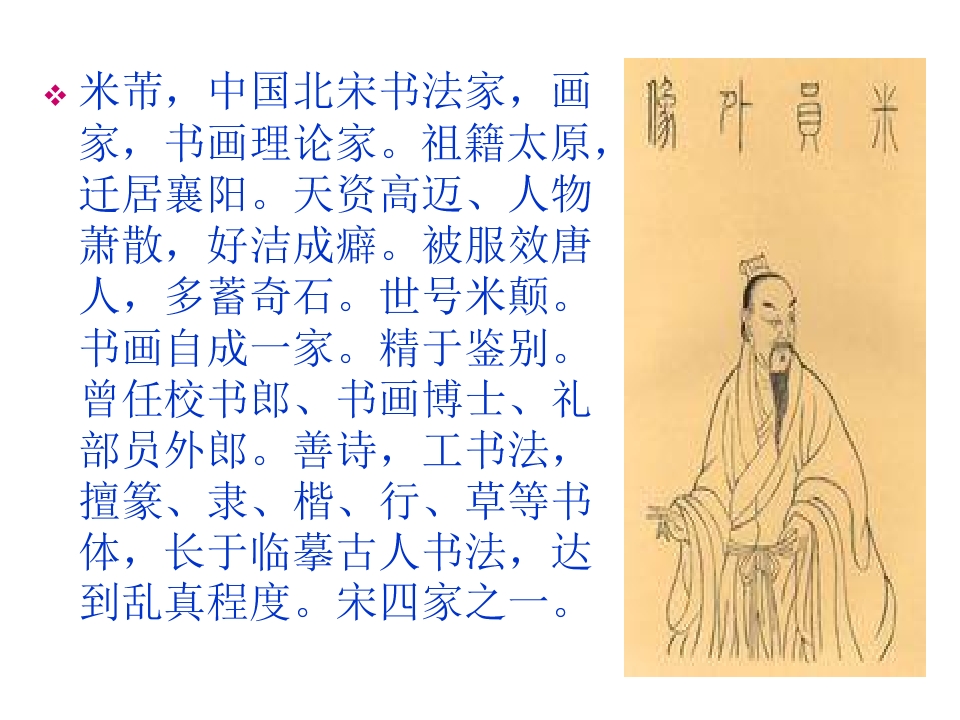 米芾，中国北宋书法家，画
家，书画理论家。祖籍太原，
迁居襄阳。天资高迈、人物
萧散，好洁成癖。被服效唐
人，多蓄奇石。世号米颠。
书画自成一家。精于鉴别。
曾任校书郎、书画博士、礼
部员外郎。善诗，工书法，
擅篆、隶、楷、行、草等书
体，长于临摹古人书法，达
到乱真程度。宋四家之一。
米員外像